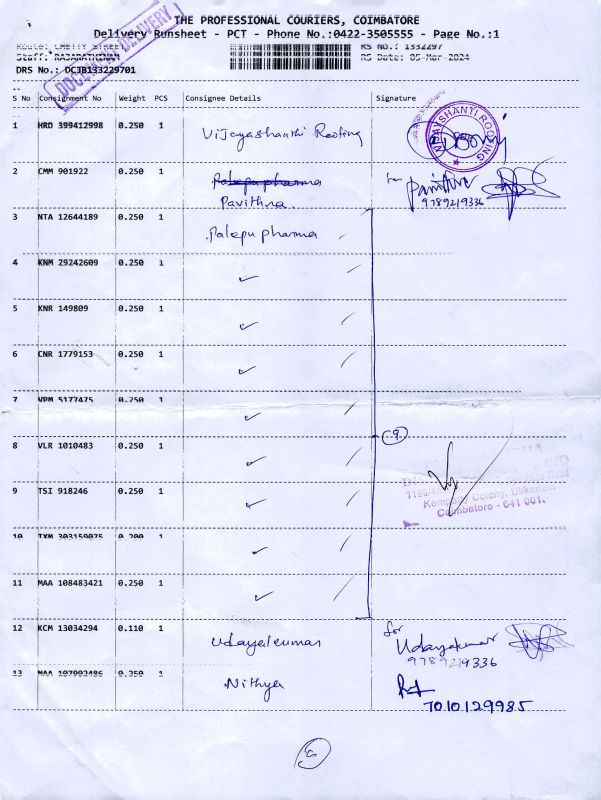 DOCUMENT DELIVERY
THE PROFESSIONAL COURIERS, COIMBATORE
Delivery Runsheet - PCT - Phone No.:0422-3505555 - Page No.:1
Route: CHETTY STREET RS No.: 1332297
Staff: RAJARATHINAM RS Date: 05-Mar-2024
DRS No.: DCJB133229701
S No Consignment No Weight PCS Consignee Details Signature
1 HRD 399412998 0.250 1 Vijayashanthi Roofing
VIJAYSHANTI ROOFING
2 CMM 901922 0.250 1 Palepu pharma for Pavithra
Pavithra 9789219336
3 NTA 12644189 0.250 1 Palepu pharma
4 KNM 29242609 0.250 1 ✓
5 KNR 149809 0.250 1 ✓
6 CNR 1779153 0.250 1 ✓
7 VPM 5177475 0.250 1 ✓
9
8 VLR 1010483 0.250 1 ✓
9 TSI 918246 0.250 1 ✓
Colony, Ukkadam
Coimbatore - 641 001.
10 TXM 303159075 0.200 1 ✓
11 MAA 108483421 0.250 1 ✓
12 KCM 13034294 0.110 1 Udayakumar for Udayakumar
9789219336
13 MAA 107903496 0.250 1 Nithya
7010129985